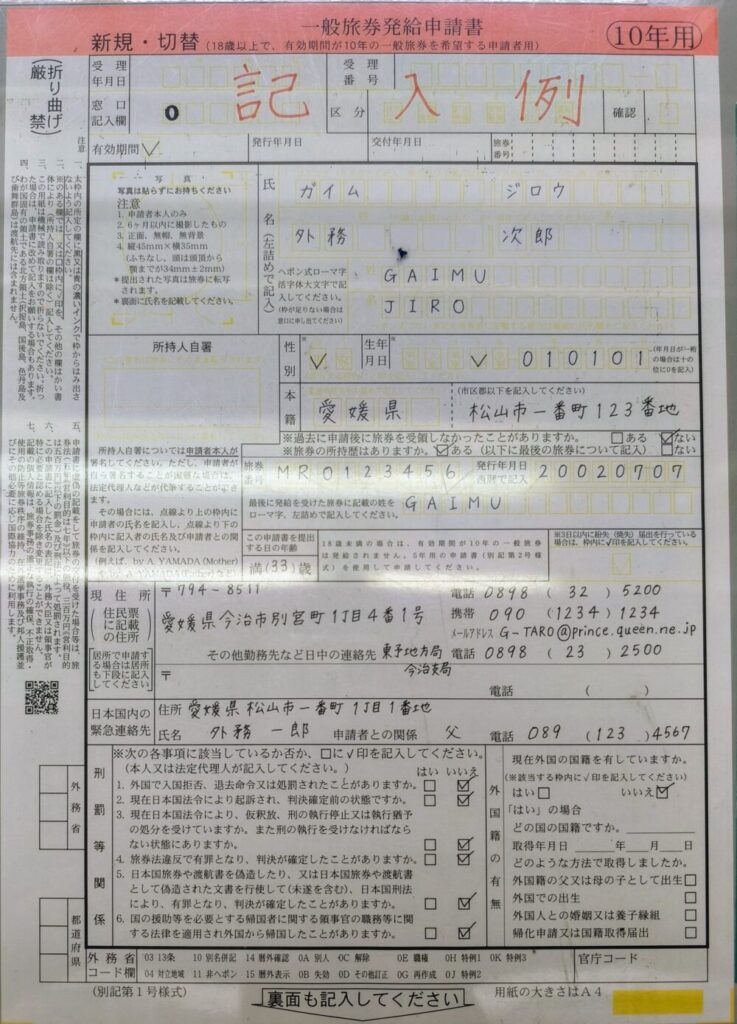 一般旅券発給申請書
新規・切替 (18歳以上で、有効期間が10年の一般旅券を希望する申請者用)
10年用
(折り曲げ厳禁)
受理年月日
受理番号
記入例
窓口記入欄
0
区分
確認
有効期間
発行年月日
交付年月日
旅券番号
注意
写真
写真は貼らずにお持ちください
注意
1. 申請者本人のみ
2. 6ヶ月以内に撮影したもの
3. 正面、無帽、無背景
4. 縦45mm×横35mm
(ふちなし、頭は頭頂から
顎までが34mm±2mm)
*提出された写真は旅券に転写
されます。
*裏面に氏名を記載してください。
氏名(左詰めで記入)
ガイム ジロウ
外務 次郎
ヘボン式ローマ字
活字体大文字で記
入してください。
(枠が足りない場合は
窓口に申し出てください)
氏 GAIMU
名 JIRO
所持人自署
性別
生年月日
010101
(年月日が一桁
の場合は十の
位に0を記入)
本籍
(市区郡以下を記入してください)
愛媛県 松山市一番町123番地
※過去に申請後に旅券を受領しなかったことがありますか。 □ある ☑ない
※旅券の所持歴はありますか。☑ある (以下に最後の旅券について記入) □ない
所持人自署については申請者本人が
署名してください。ただし、申請者が
自ら署名することが困難な場合は、
法定代理人などが代筆することができ
ます。
その場合には、点線より上の枠内に
申請者の氏名を記入し、点線より下の
枠内に記入者の氏名及び申請者との関
係を記入してください。
(例えば、by A. YAMADA (Mother)
旅券番号
MR0123456
発行年月日
西暦で記入
20020707
最後に発給を受けた旅券に記載の姓を
ローマ字、左詰めで記入してください。
GAIMU
この申請書を提出
する日の年齢
満(33)歳
18歳未満の場合は、有効期間が10年の一般旅券
は発給されません。5年用の申請書(別記第2号様
式)を使用して申請してください。
※3日以内に紛失(焼失)届出を行っている
場合は、枠内に√印を記入してください。
現住所
(住民票に記載の住所)
〒794-8511
愛媛県今治市別宮町1丁目4番1号
電話 0898 (32) 5200
携帯 090 (1234) 1234
メールアドレス G-TARO@prince.queen.ne.jp
その他勤務先など日中の連絡先 東予地方局
今治支局
電話 0898 (23) 2500
居所で申請する場合は居所も下段に記入してください
〒
電話 ( )
日本国内の
緊急連絡先
住所 愛媛県松山市一番町1丁目1番地
氏名 外務 一郎 申請者との関係 父 電話 089 (123) 4567
刑罰等関係
※次の各事項に該当しているか否か、□に√印を記入してください。
(本人又は法定代理人が記入してください。) はい いいえ
1. 外国で入国拒否、退去命令又は処罰されたことがありますか。□ ☑
2. 現在日本国法令により起訴され、判決確定前の状態ですか。□ ☑
3. 現在日本国法令により、仮釈放、刑の執行停止又は執行猶予
の処分を受けていますか。また刑の執行を受けなければなら
ない状態にありますか。□ ☑
4. 旅券法違反で有罪となり、判決が確定したことがありますか。□ ☑
5. 日本国旅券や渡航書を偽造したり、又は日本国旅券や渡航書
として偽造された文書を行使して(未遂を含む)、日本国刑法
により、有罪となり、判決が確定したことがありますか。□ ☑
6. 国の援助等を必要とする帰国者に関する領事官の職務等に関
する法律を適用され外国から帰国したことがありますか。□ ☑
外国籍の有無
現在外国の国籍を有していますか。
(※該当する枠内に√印を記入してください)
はい□ いいえ☑
「はい」の場合
どの国の国籍ですか。
取得年月日 年 月 日
どのような方法で取得しましたか。
外国籍の父又は母の子として出生□
外国での出生 □
外国人との婚姻又は養子縁組 □
帰化申請又は国籍取得届出 □
外務省
都道府県
外務省
コード欄
03 13条 10 別名併記 14 暦外確認 0A 別人 0C 解除 0E 職権 0H 特例1 0K 特例3
04 対立地域 11 非ヘボン 15 暦外表示 0B 失効 0D その他訂正 0G 再作成 0J 特例2
官庁コード
(別記第1号様式)
裏面も記入してください
用紙の大きさはA4